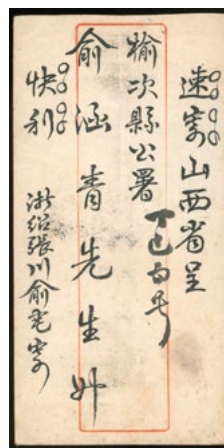 速寄山西省呈
榆次縣公署
丁巳 号
俞涵青先生升
快利
浙紹張川俞宅寄